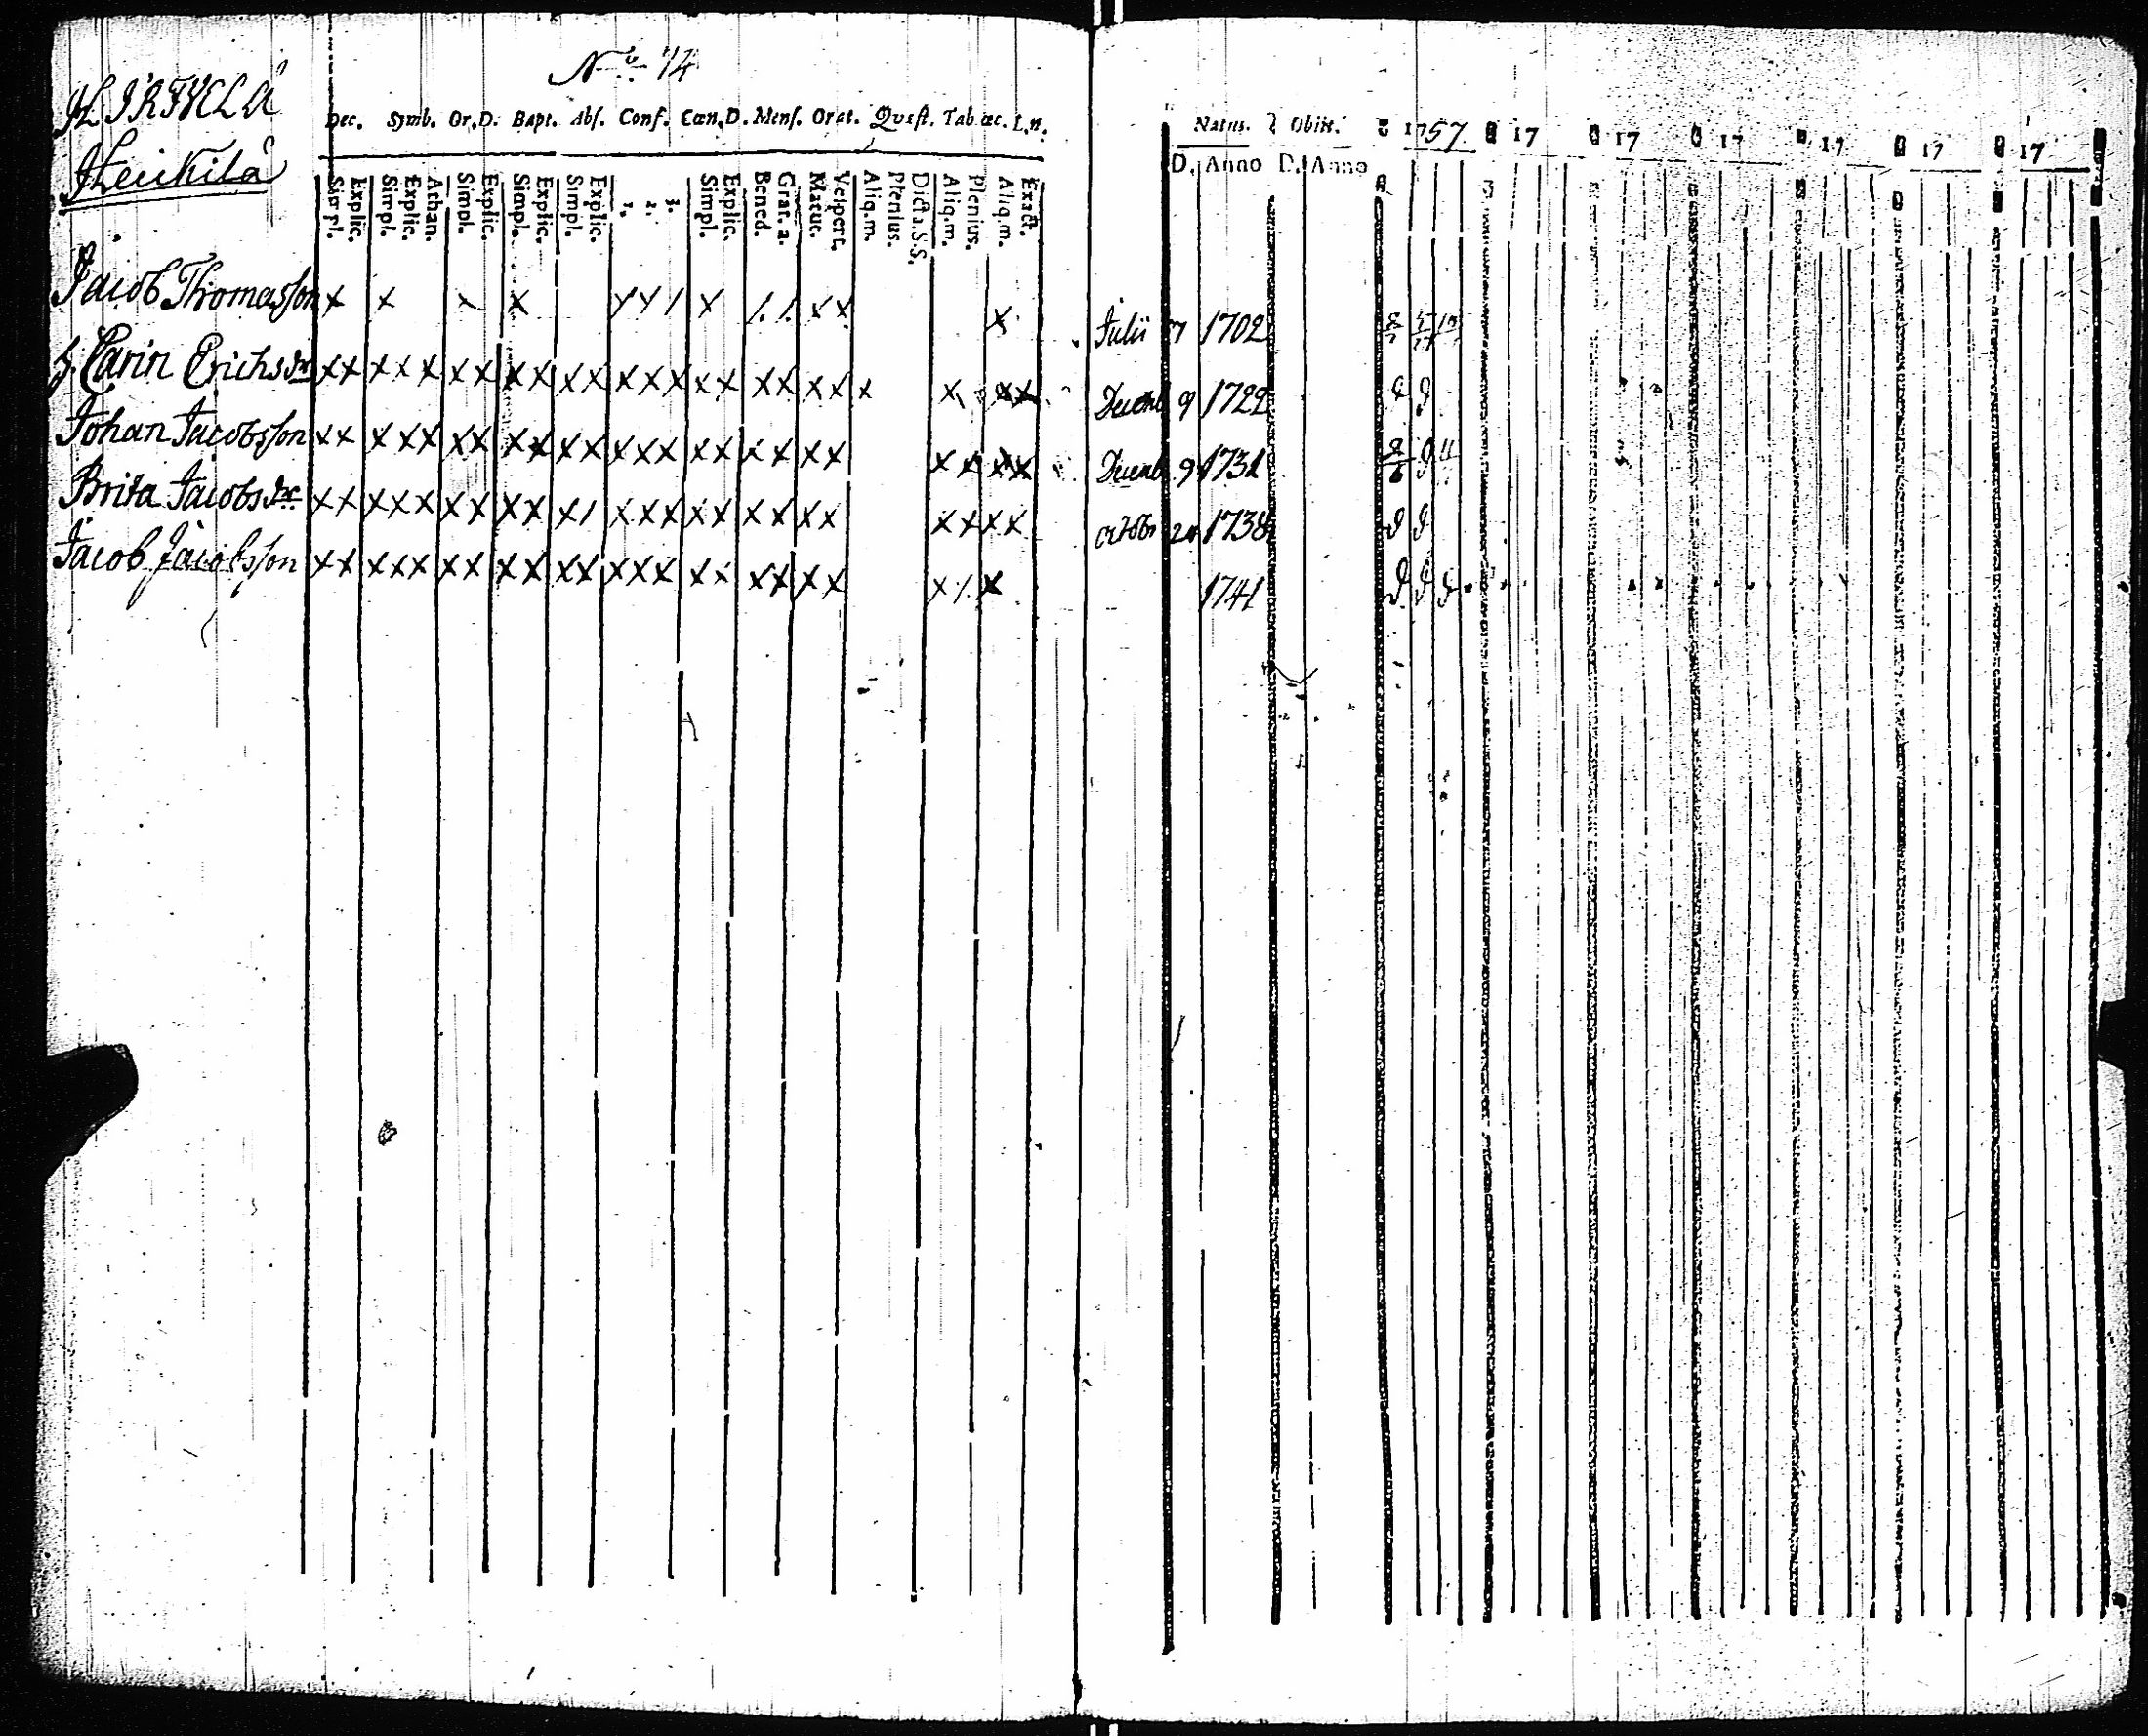 No 74
HIRFVELÄ
Heickilä
Dec. Symb. Or.D. Bapt. Abs. Conf. Cœn.D. Mens. Orat. Quæst. Tab. œc. L.n.
Simpl. Explic. Simpl. Explic. Athan. Simpl. Explic. Simpl. Explic. Simpl. Explic. 1. 2. 3. Simpl. Explic. Bened. Grat. a. Matut. Vespert. Aliq.m. Plenius. Dicta.S.S. Aliq.m. Plenius. Aliq.m. Exact.
Natus. Obiit. 1757. 17 17 17 17 17 17
D. Anno D. Anno
Jacob Thomasson x x x x x x x x x Julii 7 1702
h. Carin Erichsdr xx xxx xx xx xx xxx xx xx xx x x xx Decemb 9 1722
Johan Jacobsson xx xxx xx xx xx xxx xx xx xx xx xx Decemb 9 1731
Brita Jacobsdr xx xxx xx xx x/ xxx xx xx xx xx xx octobr 1738
Jacob Jacobsson xx xxx xx xx xx xxx xx xx xx x/ x 1741